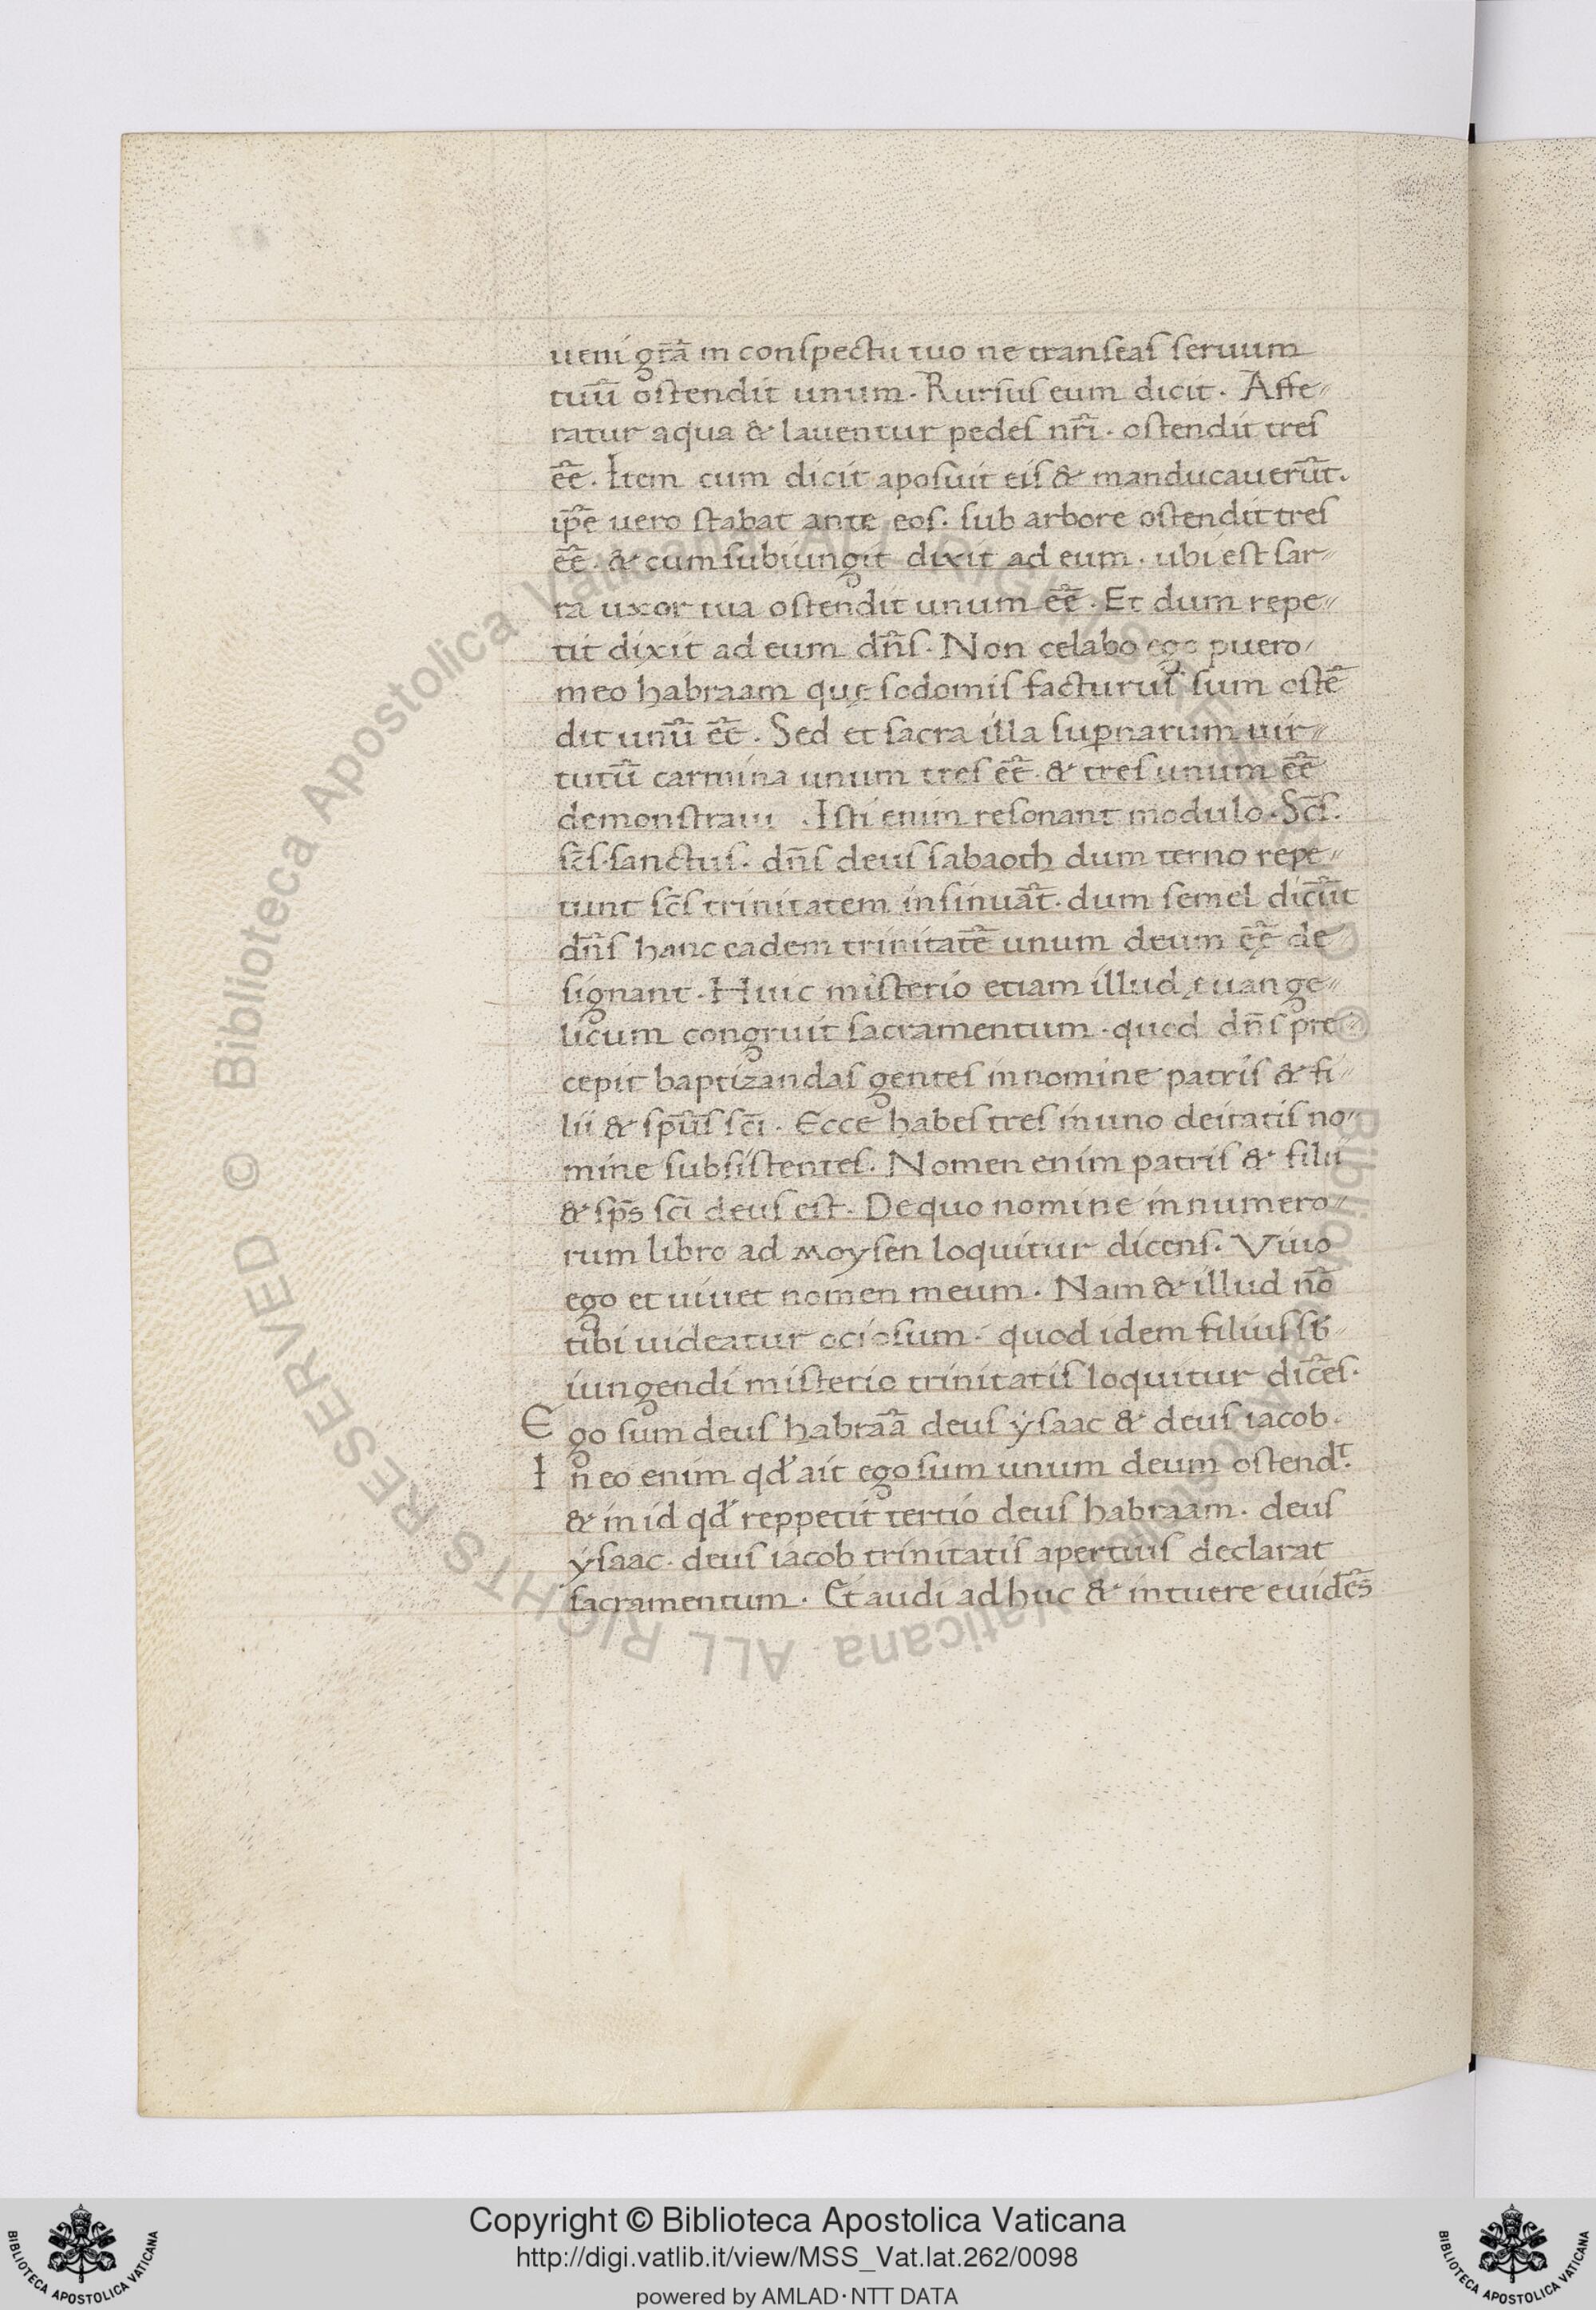 ueni gr̃a in conſpectu tuo ne tranſeaſ ſeruum
tuũ oſtendit unum. Rurſuſ eum dicit. Affe⸗
ratur aqua & lauentur pedeſ nr̃i. oſtendit treſ
ẽẽ. Item cum dicit apoſuit eiſ & manducauerũt.
ip̃e uero ſtabat ante eoſ. ſub arbore oſtendit treſ
ẽẽ. & cum ſubiungit dixit ad eum. ubi eſt ſar⸗
ra uxor tua oſtendit unum ẽẽ. Et dum repe⸗
tit dixit ad eum dñſ. Non celabo ego puero
meo habraam quę ſodomiſ facturuſ ſum oſtẽ
dit unũ ẽẽ. Sed et ſacra illa ſuꝑnarum uir⸗
tutũ carmina unum treſ ẽẽ. & treſ unum ẽẽ
demonſtrauit. Iſti enim reſonant modulo. Sc̃ſ.
ſc̃ſ. ſanctuſ. dñſ deuſ ſabaoth dum terno repe⸗
tunt ſc̃ſ trinitatem inſinuãt. dum ſemel dicũt
dñſ hanc eadem trinitatẽ unum deum ẽẽ de
ſignant. Huic miſterio etiam illud euange⸗
licum congruit ſacramentum. quod dñſ pre⸗
cepit baptizandaſ genteſ in nomine patriſ & fi⸗
lii & ſpũſ ſc̃i. Ecce habeſ treſ in uno deitatiſ no⸗
mine ſubſiſtenteſ. Nomen enim patriſ & filii
& ſp̃s ſc̃i deuſ eſt. De quo nomine in numero⸗
rum libro ad Moyſen loquitur dicenſ. Viuo
ego et uiuet nomen meum. Nam & illud nõ
tibi uideatur ocioſum. quod idem filiuſ ſb̃⸗
iungendi miſterio trinitatiſ loquitur dicẽſ.
Ego ſum deuſ habraã deuſ yſaac & deuſ iacob.
In eo enim qđ ait ego ſum unum deum oſtendᵗ.
& in id qđ reppetit tertio deuſ habraam. deuſ
yſaac. deuſ iacob trinitatiſ apertiuſ declarat
ſacramentum. Et audi ad huc & intuere euidẽs
© Biblioteca Apostolica Vaticana ALL RIGHTS RESERVED © Biblioteca Apostolica Vaticana ALL RIGHTS RESERVED
Copyright © Biblioteca Apostolica Vaticana
http://digi.vatlib.it/view/MSS_Vat.lat.262/0098
powered by AMLAD·NTT DATA
BIBLIOTECA APOSTOLICA VATICANA
BIBLIOTECA APOSTOLICA VATICANA